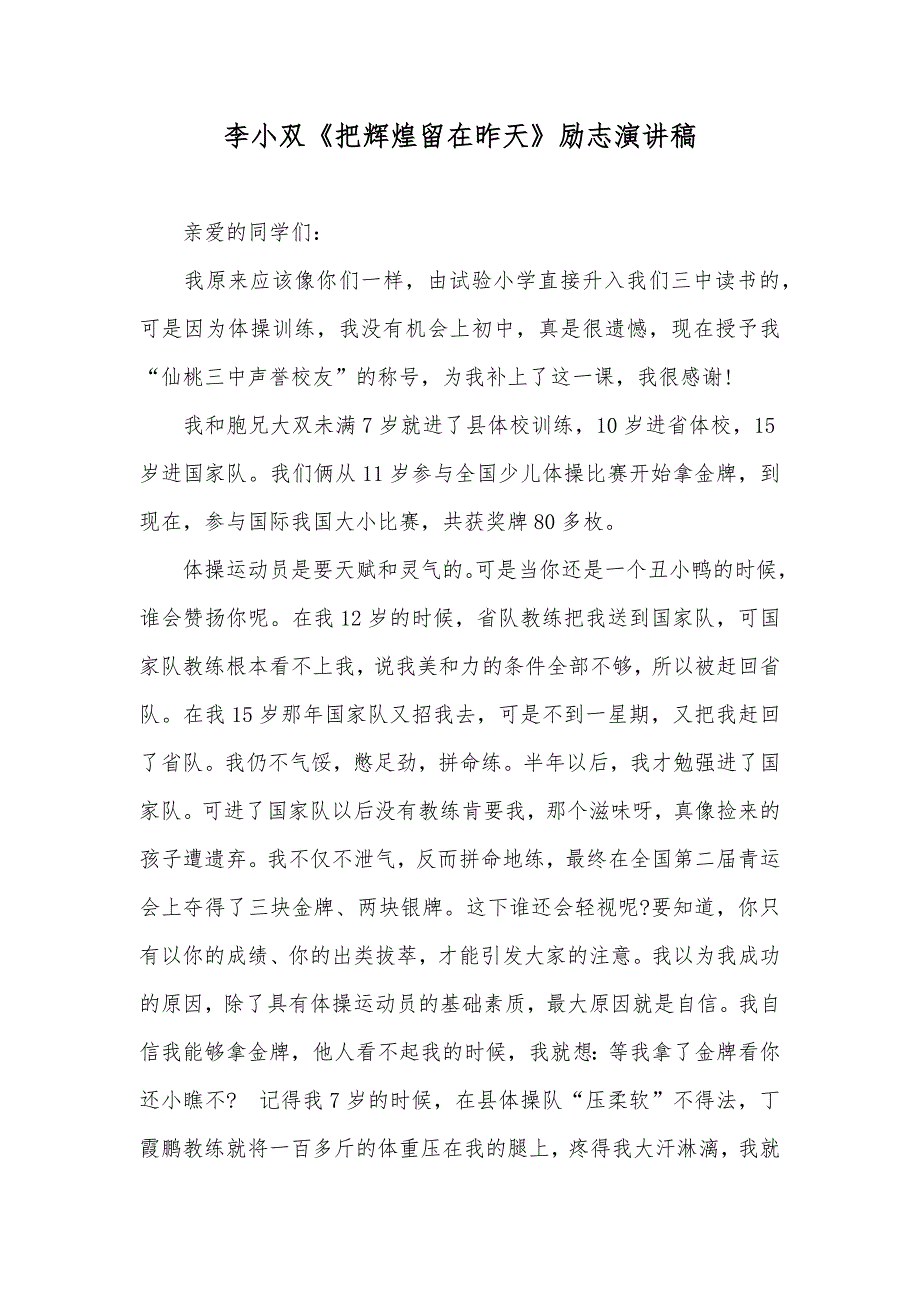 李小双《把辉煌留在昨天》励志演讲稿
亲爱的同学们：
我原来应该像你们一样，由试验小学直接升入我们三中读书的，
可是因为体操训练，我没有机会上初中，真是很遗憾，现在授予我
“仙桃三中声誉校友”的称号，为我补上了这一课，我很感谢!
我和胞兄大双未满 7 岁就进了县体校训练，10 岁进省体校，15
岁进国家队。我们俩从 11 岁参与全国少儿体操比赛开始拿金牌，到
现在，参与国际我国大小比赛，共获奖牌 80 多枚。
体操运动员是要天赋和灵气的。可是当你还是一个丑小鸭的时候，
谁会赞扬你呢。在我 12 岁的时候，省队教练把我送到国家队，可国
家队教练根本看不上我，说我美和力的条件全部不够，所以被赶回省
队。在我 15 岁那年国家队又招我去，可是不到一星期，又把我赶回
了省队。我仍不气馁，憋足劲，拼命练。半年以后，我才勉强进了国
家队。可进了国家队以后没有教练肯要我，那个滋味呀，真像捡来的
孩子遭遗弃。我不仅不泄气，反而拼命地练，最终在全国第二届青运
会上夺得了三块金牌、两块银牌。这下谁还会轻视呢?要知道，你只
有以你的成绩、你的出类拔萃，才能引发大家的注意。我以为我成功
的原因，除了具有体操运动员的基础素质，最大原因就是自信。我自
信我能够拿金牌，他人看不起我的时候，我就想：等我拿了金牌看你
还小瞧不?  记得我 7 岁的时候，在县体操队“压柔软”不得法，丁
霞鹏教练就将一百多斤的体重压在我的腿上，疼得我大汗淋漓，我就